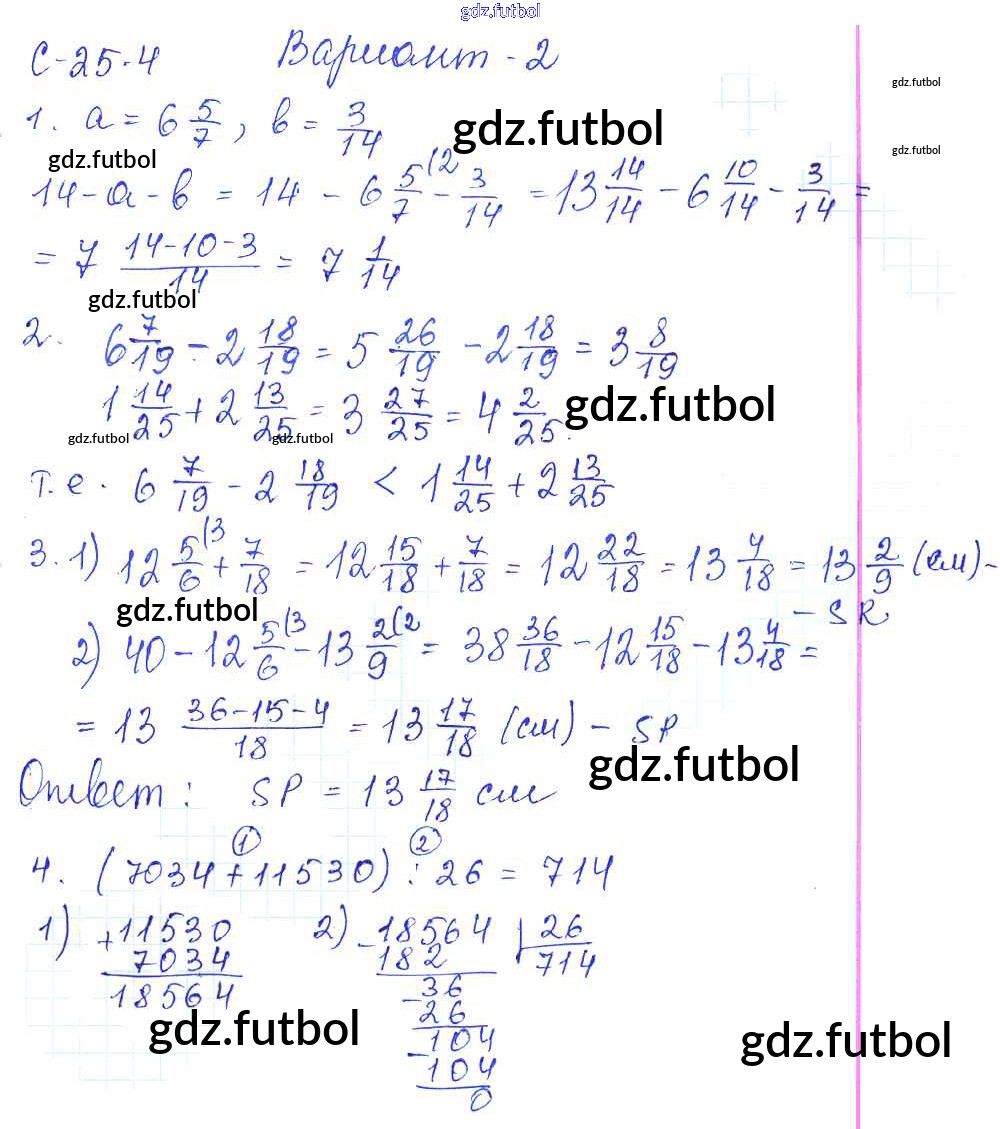 gdz.futbol
С-25.4 Вариант-2
gdz.futbol
1. a = 6 5/7, b = 3/14 gdz.futbol
gdz.futbol gdz.futbol
14-a-b = 14 - 6 5/7 (2 - 3/14 = 13 14/14 - 6 10/14 - 3/14 =
= 7 (14-10-3)/14 = 7 1/14
gdz.futbol
2. 6 7/19 - 2 18/19 = 5 26/19 - 2 18/19 = 3 8/19
1 14/25 + 2 13/25 = 3 27/25 = 4 2/25. gdz.futbol
gdz.futbol gdz.futbol
т.е. 6 7/19 - 2 18/19 < 1 14/25 + 2 13/25
3. 1) 12 5/6 (3 + 7/18 = 12 15/18 + 7/18 = 12 22/18 = 13 4/18 = 13 2/9 (см) -
gdz.futbol - SR
2) 40 - 12 5/6 (3 - 13 2/9 (2 = 38 36/18 - 12 15/18 - 13 4/18 =
= 13 (36-15-4)/18 = 13 17/18 (см) - SP
gdz.futbol
Ответ: SP = 13 17/18 см
① ②
4. (7034+11530) : 26 = 714
1) +11530 2) -18564 | 26
7034 182 714
18564 -36
gdz.futbol 26
-104 gdz.futbol
104
0